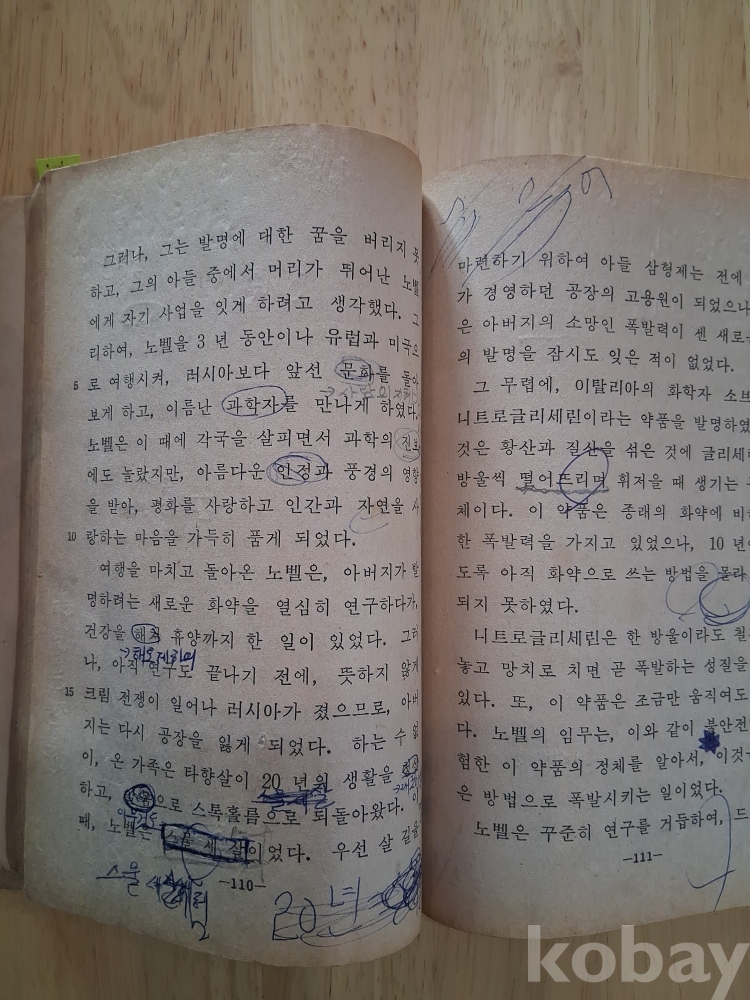 그러나, 그는 발명에 대한 꿈을 버리지 못
하고, 그의 아들 중에서 머리가 뛰어난 노벨
에게 자기 사업을 잇게 하려고 생각했다. 그
리하여, 노벨을 3 년 동안이나 유럽과 미국으
5 로 여행시켜, 러시아보다 앞선 문화를 돌아
보게 하고, 이름난 과학자를 만나게 하였다.
노벨은 이 때에 각국을 살피면서 과학의 진보
에도 놀랐지만, 아름다운 인정과 풍경의 영향
을 받아, 평화를 사랑하고 인간과 자연을 사
10 랑하는 마음을 가득히 품게 되었다.
여행을 마치고 돌아온 노벨은, 아버지가 발
명하려는 새로운 화약을 열심히 연구하다가,
건강을 해쳐 휴양까지 한 일이 있었다. 그러
나, 아직 연구도 끝나기 전에, 뜻하지 않게
15 크림 전쟁이 일어나 러시아가 졌으므로, 아버
지는 다시 공장을 잃게 되었다. 하는 수 없
이, 온 가족은 타향살이 20 년의 생활을
하고, 으로 스톡홀름으로 되돌아왔다.
때, 노벨은 스물 세 살이었다. 우선 살 길을
스물
20년
—110—
마련하기 위하여 아들 삼형제는 전에
가 경영하던 공장의 고용원이 되었으나
은 아버지의 소망인 폭발력이 센 새로
의 발명을 잠시도 잊은 적이 없었다.
그 무렵에, 이탈리아의 화학자 소브
니트로글리세린이라는 약품을 발명하였
것은 황산과 질산을 섞은 것에 글리세
방울씩 떨어뜨리며 휘저을 때 생기는
체이다. 이 약품은 종래의 화약에 비
한 폭발력을 가지고 있었으나, 10 년이
도록 아직 화약으로 쓰는 방법을 몰라
되지 못하였다.
니트로글리세린은 한 방울이라도 철
놓고 망치로 치면 곧 폭발하는 성질을
있다. 또, 이 약품은 조금만 움직여도
다. 노벨의 임무는, 이와 같이 불안전
험한 이 약품의 정체를 알아서, 이것
은 방법으로 폭발시키는 일이었다.
노벨은 꾸준히 연구를 거듭하여, 드
—111—
kobay